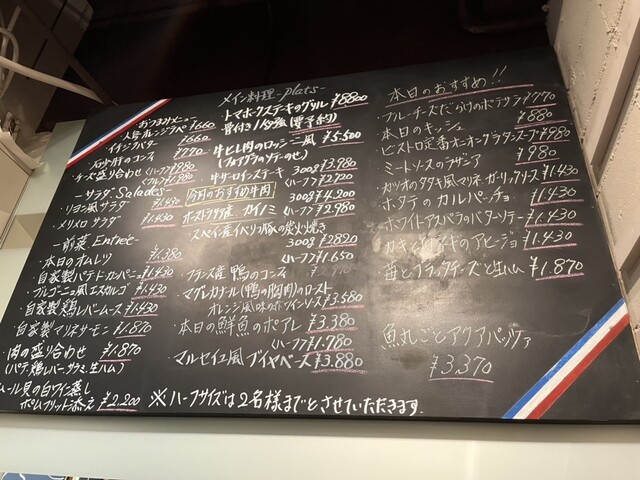 おつまみメニュー
・人参オレンジラペ ¥660
・イチジクバター ¥660
・砂肝のコンフィ ¥770
・チーズ盛り合わせ
(ハーフ) ¥880
-サラダ Salades-
・リヨン風サラダ ¥1.430
・メリメロサラダ ¥1.430
-前菜 Entrée-
・本日のオムレツ ¥1.380
・自家製パテ・ド・カンパーニュ ¥1.430
・ブルゴーニュ風エスカルゴ ¥1.430
・自家製鶏レバームース ¥1.430
・自家製マリネサーモン ¥1.870
・肉の盛り合わせ ¥1.870
(パテ、鶏レバー、サラミ、生ハム)
ムール貝の白ワイン蒸し
ポムフリット添え ¥2.200
メイン料理 -plats-
・トマホークステーキのグリル ¥8800
骨付き 1kg強 (要予約)
・牛ヒレ肉のロッシーニ風 ¥5.500
(フォアグラのソテーのせ)
・牛サーロインステーキ 300g ¥3.980
(ハーフ) ¥2.720
今月のおすすめ牛肉 300g ¥4.200
・オーストラリア産 カイノミ (ハーフ) ¥2.980
・スペイン産イベリコ豚の炭火焼き
300g ¥2820
(ハーフ) ¥1.650
・フランス産 鴨のコンフィ
・マグレカナール(鴨の胸肉)のロースト
オレンジ風味の赤ワインソース ¥3.580
・本日の鮮魚のポアレ ¥3.380
(ハーフ) ¥1.780
・マルセイユ風ブイヤベース ¥3.880
※ハーフサイズは2名様までとさせていただきます。
本日のおすすめ!!
・ブルーチーズだらけのポテサラ ¥770
・本日のキッシュ ¥880
・ビストロ定番オニオングラタンスープ ¥980
・ミートソースのラザニア ¥980
・カツオのタタキ風マリネ、ガーリックソース ¥1.430
・ホタテのカルパッチョ ¥1.430
・ホワイトアスパラのバターソテー ¥1.430
・カキとのアヒージョ ¥1.430
・苺とブラックチーズと生ハム ¥1.870
魚丸ごとアクアパッツァ
¥3.370